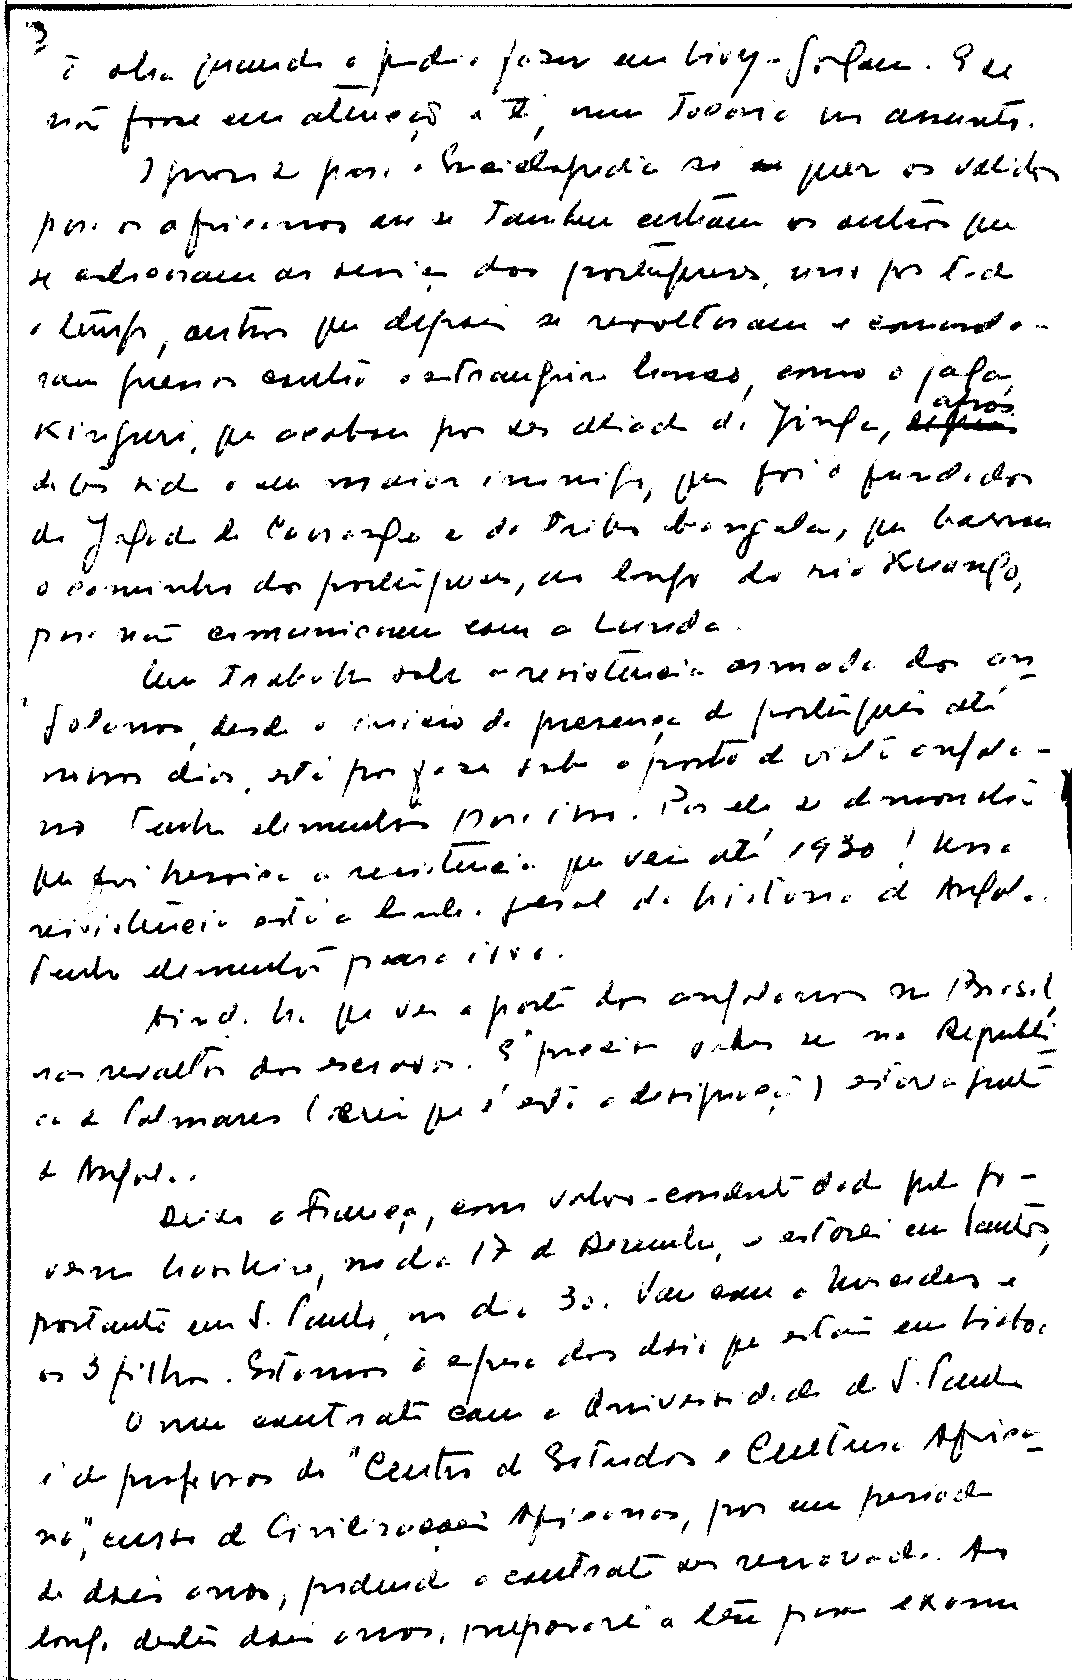 3
à obra quando o podia fazer um bray-Golam. E se
não fosse em atenção a ti, nem tocaria no assunto.
Ignoro se para a Enciclopédia só se quer os válidos
para os africanos ou se também entram os outros que
se colocaram ao serviço dos portugueses, uns por todo
o tempo, outros que depois se revoltaram e comanda-
ram guerras contra o estrangeiro branco, como o jaga
Kinguri, que acabou por ser aliado de Jinga, após
de ter sido o seu maior inimigo, que foi o fundador
do Jagado de Cassange e da tribo bangala, que barrou
o caminho dos portugueses, ao longo do rio Kuango,
para não comunicarem com a Lunda.
Um trabalho sobre a resistência armada dos an-
golanos, desde o início da presença do português até
nossos dias, está por fazer sob o ponto de vista angola-
no. Tenho elementos para isso. Por ele se demonstra
que foi heroica a resistência que vem até 1930! Essa
resistência está a linha geral da história de Angola.
Tenho elementos para isso.
Ainda há que ver a parte dos angolanos no Brasil,
nas revoltas dos escravos. É preciso saber se na Repúbli-
ca de Palmares (creio que é esta a designação) estava gente
de Angola.
Deixo a França, com salvo-conduto dado pelo go-
verno brasileiro, no dia 17 de Dezembro, e estarei em Santos,
portanto em S. Paulo, no dia 30. Vou com a Mercedes e
os 3 filhos. Estamos à espera dos dois que estão em Lisboa.
O meu contrato com a Universidade de S. Paulo
é de professor do "Centro de Estudos e Cultura Africa-
na", curso de Civilizações Africanas, por um período
de dois anos, podendo o contrato ser renovado. Ao
longo destes dois anos, prepararei a tese para exame